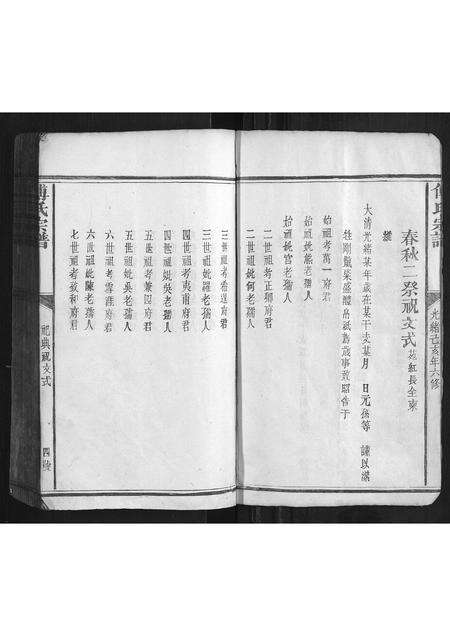 傅氏宗譜
光緒己亥年六修
春秋二祭祝文式
維
大清光緒某年歲在某干支某月 日元孫等 謹以潔
牲剛鬣粢盛醴帛祇為歲事敢昭告于
始祖考萬一府君
始祖妣熊老孺人
始祖妣官老孺人
二世祖考正卿府君
二世祖妣何老孺人
三世祖考 府君
三世祖妣羅老孺人
四世祖考夷甫府君
四世祖妣吳老孺人
五世祖考兼四府君
五世祖妣吳老孺人
六世祖考雪崖府君
六世祖妣陳老孺人
七世祖考致和府君
傅氏宗譜
祀典祝文式
四陵